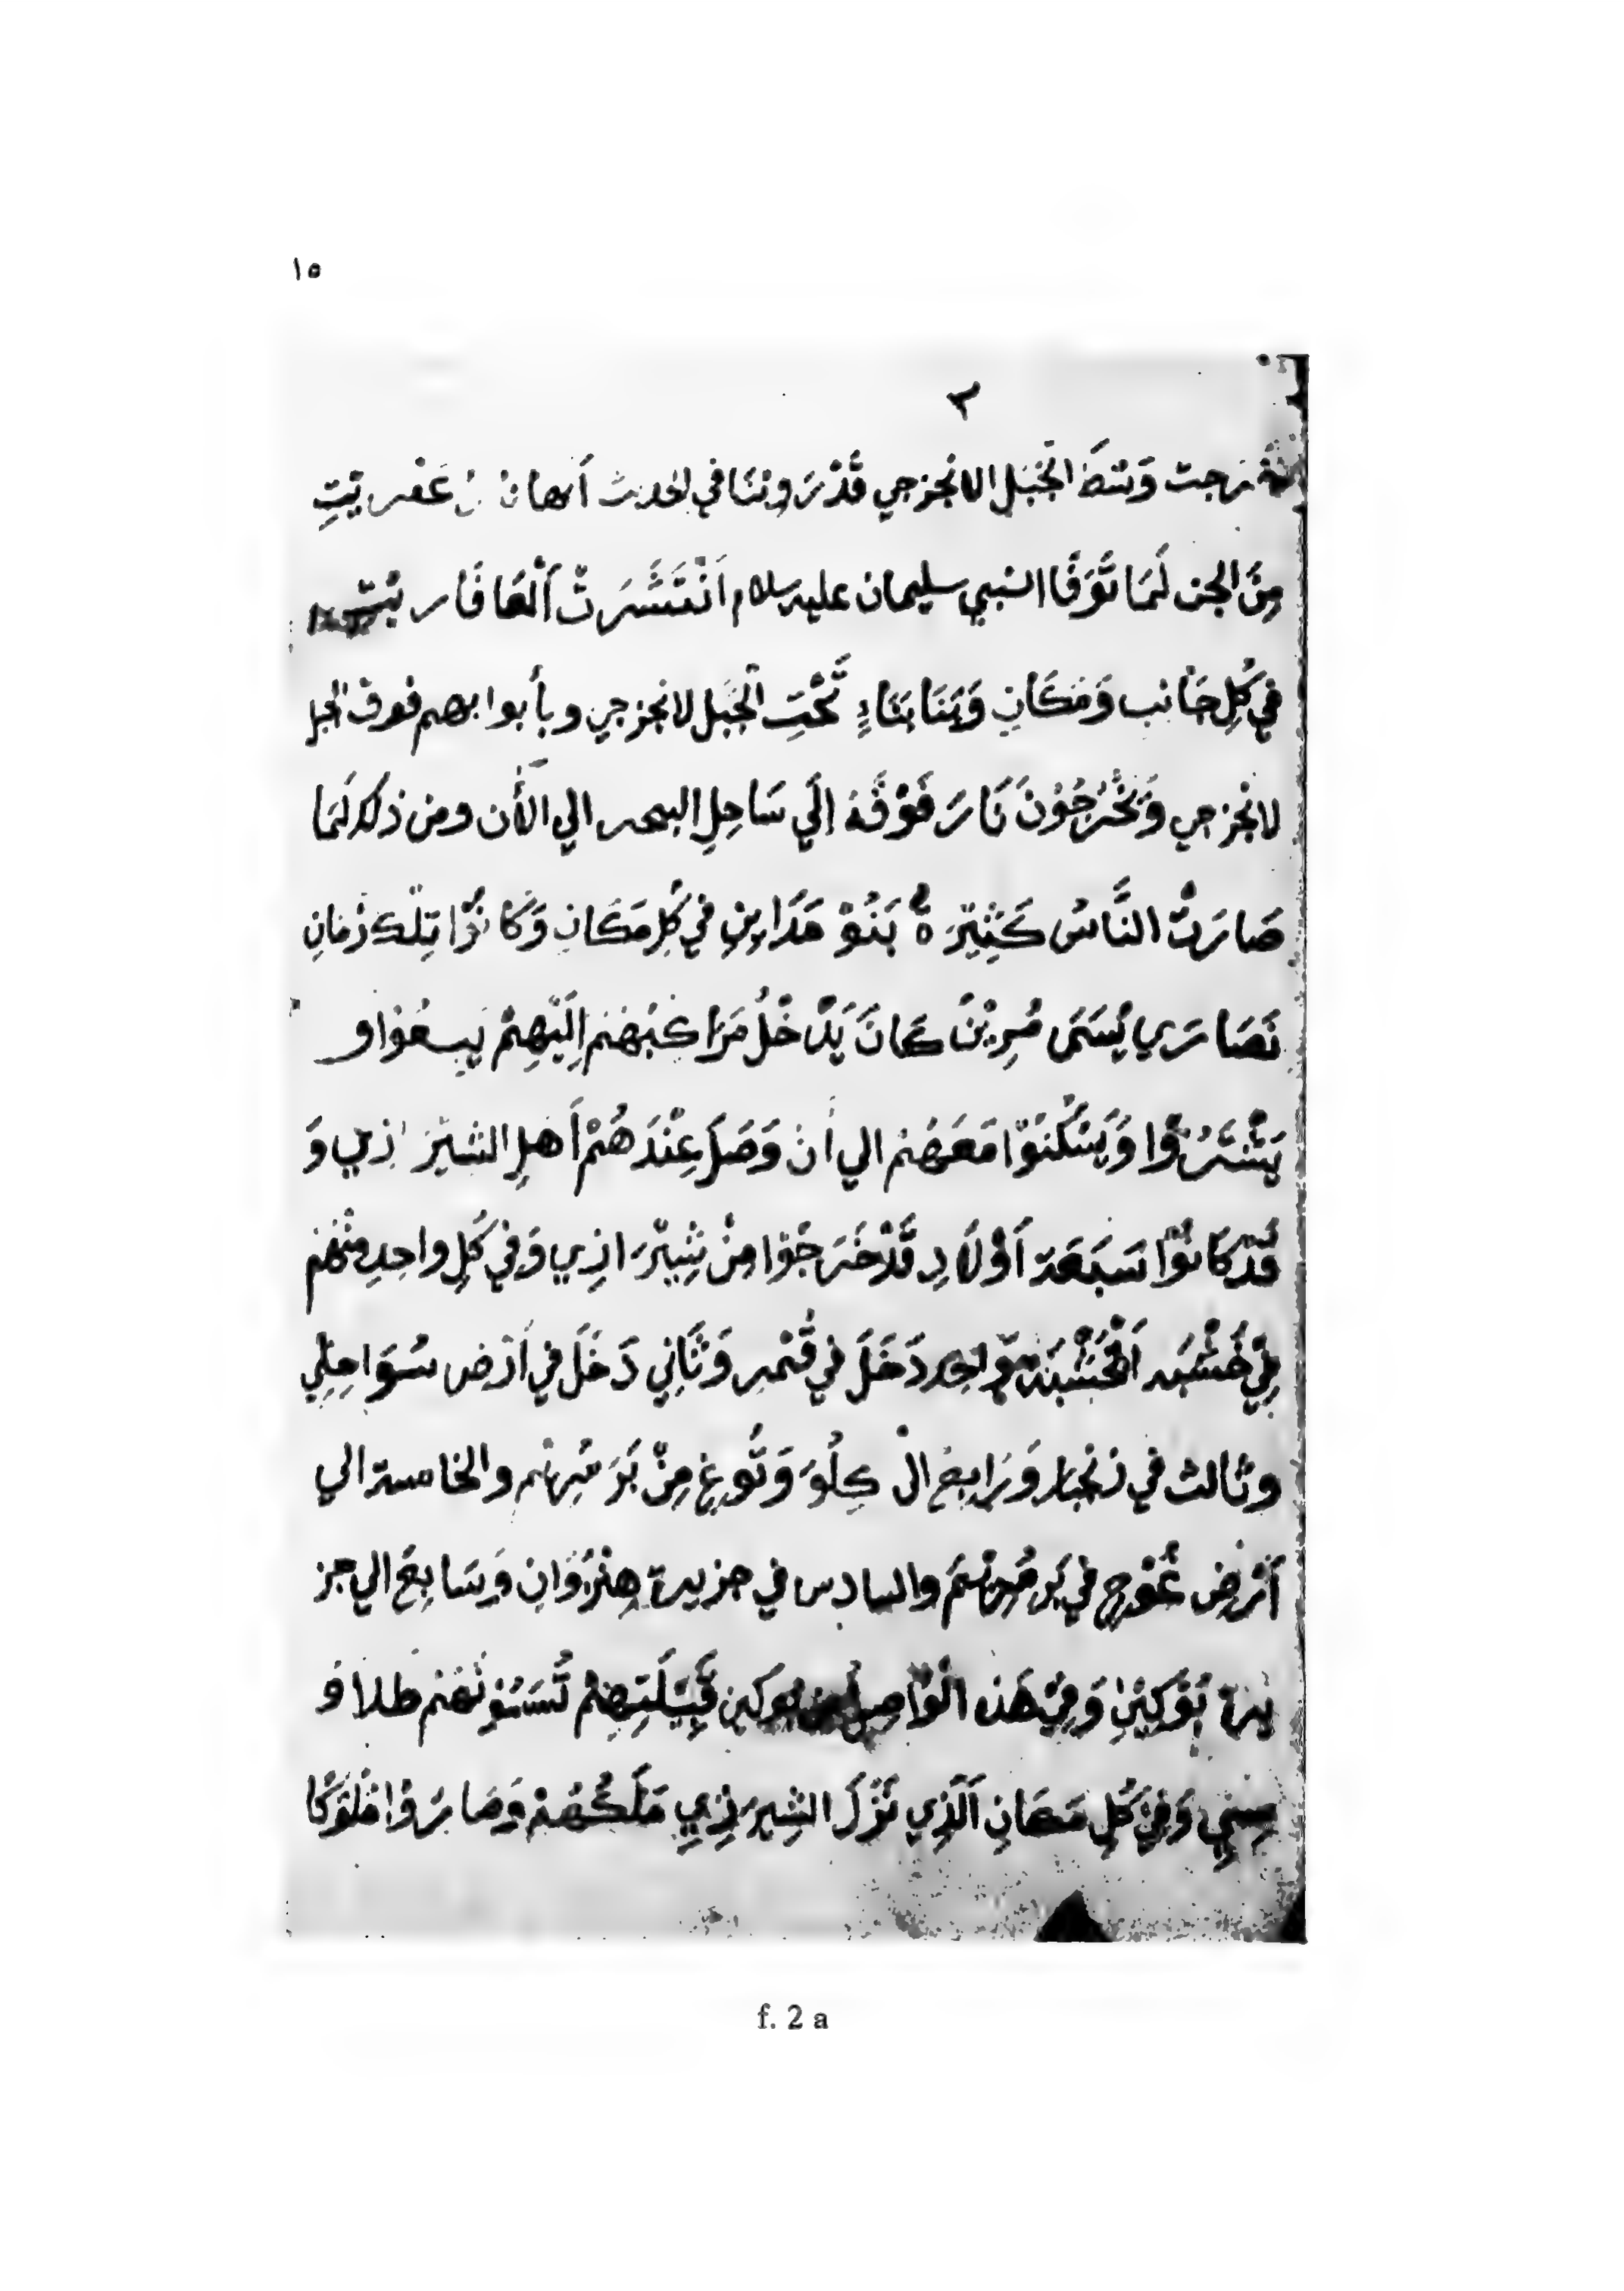 ١٥
٣
خَرجت وَسَطَ الْجَبَل الانجزجي قَدْ رَوِيْنَا في الحديث أنها عَفْريْتِ
مِنَ الجن لَمَا تُوَفَّا النبي سليمان عليه سلام اَنْتَشَرَتْ اَلْعَافَاريْتِ
فِي كُلِ جَانب وَمَكَانِ وَبَنَا بَنَاءٍ تَحْتِ الْجَبَل لانجزجي وبأبوابهم فوق الجبل
لانجزجي وَيَخْرُجُوْنَ نَارَ فَوْقَهُ اِلَي سَاحِلِ البحر الي الْأَن ومن ذلك لَمَا
صَارَتْ النَّاسُ كَثِيْرَةٌ بَنُوْ مَدَايِنِ فِي كُلِ مَكَانِ وَكَانُوْا تِلْكَ زْمَانِ
نَصَارَي يُسَمَى مُرِيْنَ كَانَ يَدْخُلُ مَرَاكِبُهُمْ اِلَيْهِمْ يَبِيعُوْا و
يَشْتَرُوْا وَيَسْكُنُوْا مَعَهُمْ الي اَنْ وَصَلَ عِنْدَهُمْ اَهلِ الشيْرَازِي وَ
قَدْ كَانُوْا سَبَعَة اَوْلَادِ قَدْ خَرَجُوْا مِنْ شِيْرَازِي وَفِي كُلِ واحِدِ مِنْهُمْ
فِي خَشْبَه اَلْخَشَبَة وَاحِد دَخَلَ فِي قُمْرِ وَثَانِي دَخَلَ فِي اَرْضِ سَوَاحِلِي
وثَالث في زنجبار وَرَابِعْ الْ كِلُوَ وَتُوغِ مِنْ بَرَ مْرِيْم والخامسة الي
أَرْضِ عُوْج فِي بَرِ مْرِيْمَ والسادس في جزيرة هِنْزُوَانِ وَسَابِعْ الي جز
يرة بُوْكِيْنِ وَمِنْ هَذِه الْوَاصِلِيْن بوكين قَبِيْلَتِهِمْ تُسَمُوْنَهُمْ طلافُ
مِيْنِي وَفِي كُلِ مَكَانِ اَلَّذِي نَزَلَ الشِيرَزِيِ مَلَكُهُمْ وَصَارَوْا مُلُوْكًا
f. 2 a